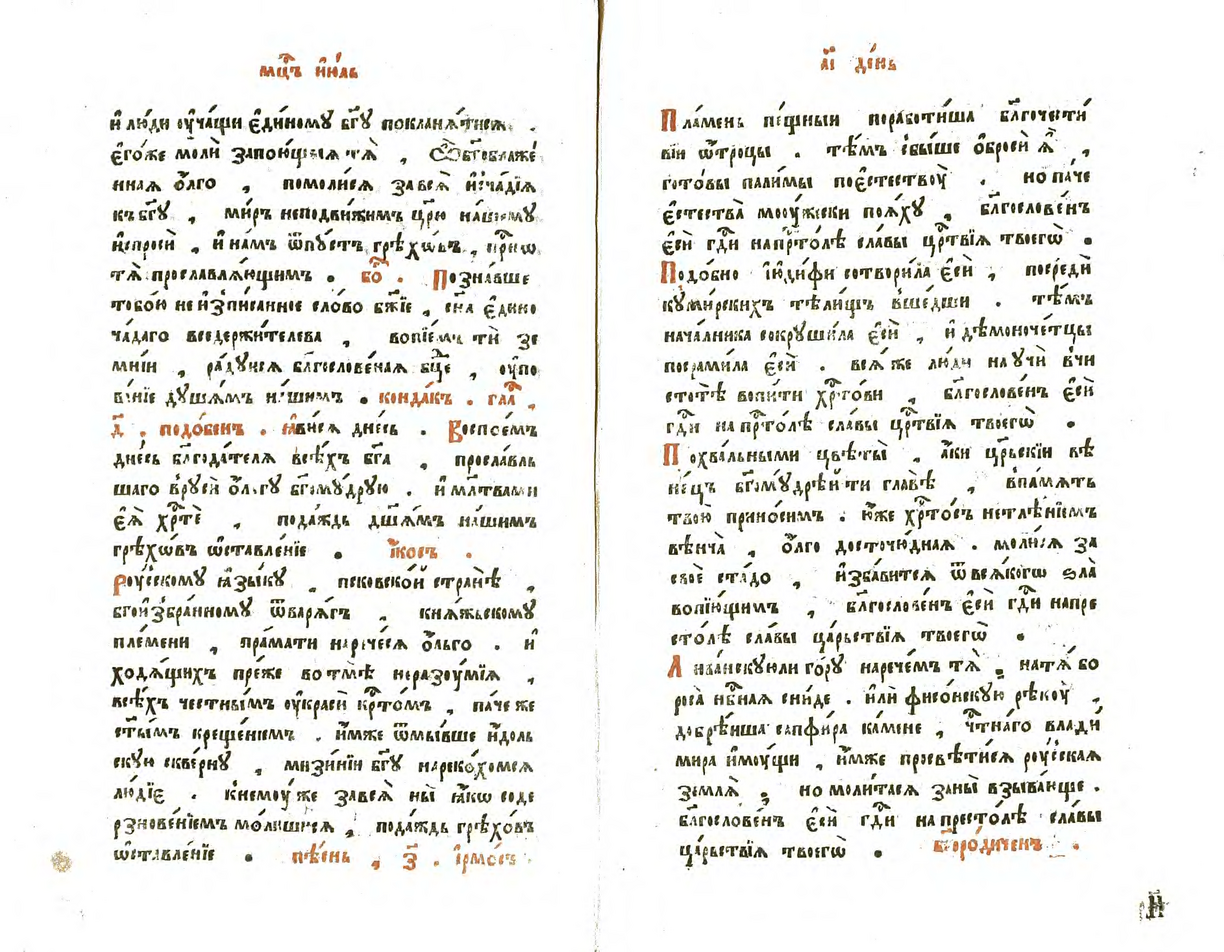 мц҃ъ и҆ю́ль
и҆ лю́ди ᲂу҆ча́щи є҆ди́ному бг҃у покланѧ́тисѧ .
є҆го́же молѝ за пою́щыѧ тѧ̀ , Ѽ бг҃обл҃аже́
ннаѧ ѻ҆́лго , помоли́сѧ за всѧ̀ и҆ ча́дїѧ
къ бг҃у , ми́ръ неподви́жимъ цр҃ю на́шему
и҆спросѝ , и҆ на́мъ ѿпу́стъ грѣхѡ́въ , при́снѡ
тѧ̀ прославлѧ́ющимъ . бо҃ . Позна́вше
тобо́ю неи҆зпи́санное сло́во бж҃їе , сн҃а є҆дино
ча́даго вседержи́телева , вопїе́мъ тѝ зе
мні́и , ра́дуисѧ бл҃гослове́наѧ бц҃е , ᲂу҆по
ва́нїе душа́мъ на́шимъ . конда́къ . гла҃ ,
д҃ . подо́бенъ . ꙗ҆ви́сѧ дне́сь . Воспое́мъ
дне́сь бл҃года́телѧ всѣ́хъ бг҃а , просла́вль
шаго в̾ ру́сѝ ѻ҆́лгу бг҃ому́друю . и҆ мл҃твами
є҆ѧ̀ хр҃тѐ , пода́ждь дш҃а́мъ на́шимъ
грѣхѡ́въ ѡ҆ставле́нїе . і҆́косъ .
Роу́сскому ꙗ҆зы́ку , пско́вской странѣ̀ ,
бг҃ои҆збра́нному ѿ варѧ́гъ , кнѧ́жьскому
пле́мени , пра́мати нарече́сѧ ѻ҆́льго . и҆
ходѧ́щихъ пре́же во тмѣ̀ неразоу́мїѧ ,
всѣ́хъ че́стнымъ ᲂу҆красѝ кр҃то́мъ , па́че же
ст҃ы́мъ креще́нїемъ . и҆́мже ѿмы́вше и҆́доль
скую скве́рну , мизи́нїи бг҃у нареко́хомсѧ
лю́дїе . к̾ нему́же за всѧ̀ ны̀ ꙗ҆́кѡ со де
рзнове́нїемъ мо́лѧщисѧ , пода́ждь грѣхо́въ
ѡ҆ставле́нїе . пѣ́снь , з҃ . і҆рмо́съ .
а҃і де́нь
Пла́мень пе́щныи порабо́тиша бл҃гочести́
вїи ѻ҆́троцы . тѣ́мъ свы́ше ѻ҆бросѝ ѧ҆̀ ,
гото́вы пали́мы по є҆стествоу̀ . но па́че
є҆стества̀ моо҆у́жески поѧ́ху , бл҃гослове́нъ
є҆сѝ гд҃и на пр҃то́лѣ сла́вы цр҃твїѧ твоегѡ̀ .
Подо́бно і҆ю҆ди́фи сотвори́ла є҆сѝ , посредѝ
кꙋми́рскихъ тѣли́щъ в̾ше́дши . тѣ́мъ
нача́лника сокруши́ла є҆сѝ , и҆ дѣмоноче́тцы
посрами́ла є҆сѝ . всѧ́ же лю́ди на у́чѝ в̾ чи
стотѣ̀ вопи́ти хр҃то́ви , бл҃гослове́нъ є҆сѝ
гд҃и на пр҃то́лѣ сла́вы цр҃твїѧ твоегѡ̀ .
Похва́льными цвѣ́ты , а҆́ки цр҃ьскїи вѣ
не́цъ бг҃ому́дрѣи ти главѣ̀ , в̾ па́мѧть
твою̀ прино́симъ . ю҆́же хр҃то́съ нетлѣ́нїемъ
вѣнча̀ , ѻ҆́лго досточю́днаѧ . моли́сѧ за
своѐ ста́до , и҆зба́витсѧ ѿ всѧ́когѡ ѕла̀
вопїю́щимъ , бл҃гослове́нъ є҆сѝ гд҃и на пре
сто́лѣ сла́вы ца́рьствїѧ твоегѡ̀ .
Лива́нскую ли го́ру нарече́мъ тѧ̀ , на тѧ̀ бо
роса̀ нб҃наѧ сни́де . и҆лѝ фисо́нскую рѣкоу̀ ,
добрѣ́иша сапфи́ра ка́мене , чт҃на́го влади́
мира и҆моу́щи , и҆́мже просвѣти́сѧ роу́сскаѧ
землѧ̀ , но моли́тасѧ за ны̀ взыва́юще .
бл҃гослове́нъ є҆сѝ гд҃и на престо́лѣ сла́вы
ца́рьствїѧ твоегѡ̀ . бг҃оро́диченъ .
н҃